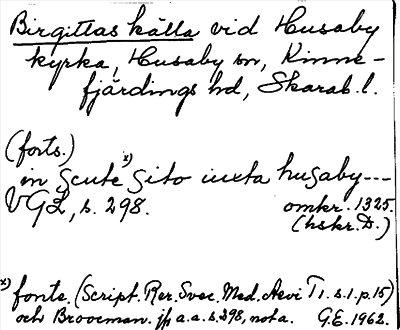 Birgittas källa vid Husaby
kyrka, Husaby sn, Kinne-
fjärdings hd, Skarab. l.
(forts.)
in scute x) sito iuxta husaby---
VGL, s. 298. omkr. 1325.
(hskr. D.)
x) fonte. (Script. Rer. Svec. Med. Aevi T 1. s. 1. p. 15)
och Brooeman. jfr a.a. s. 298, nota. G.E. 1962.